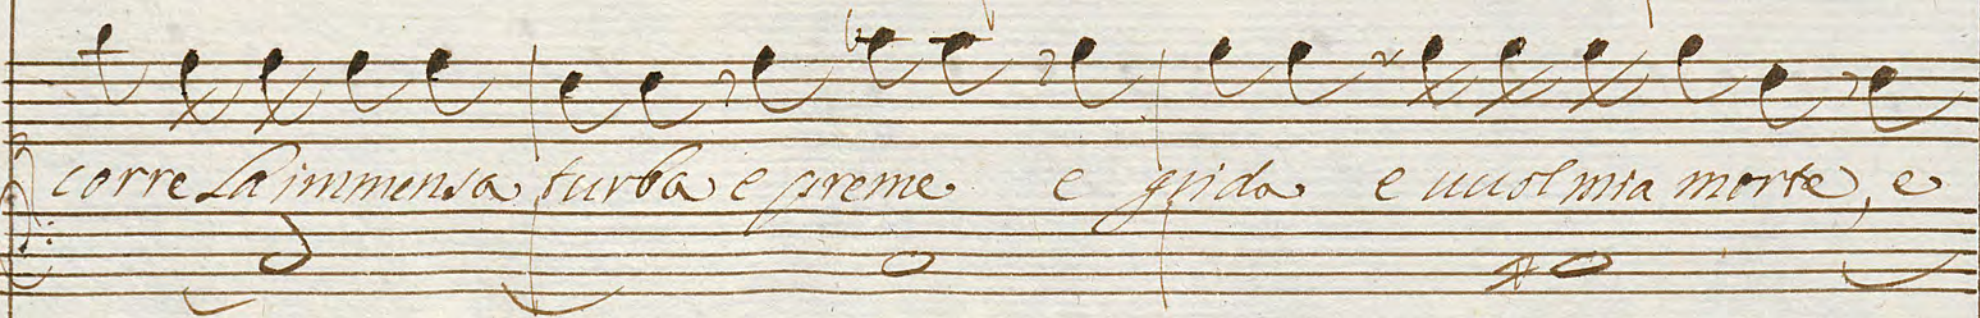 corre La immensa turba e preme e grida e uuol mia morte, e